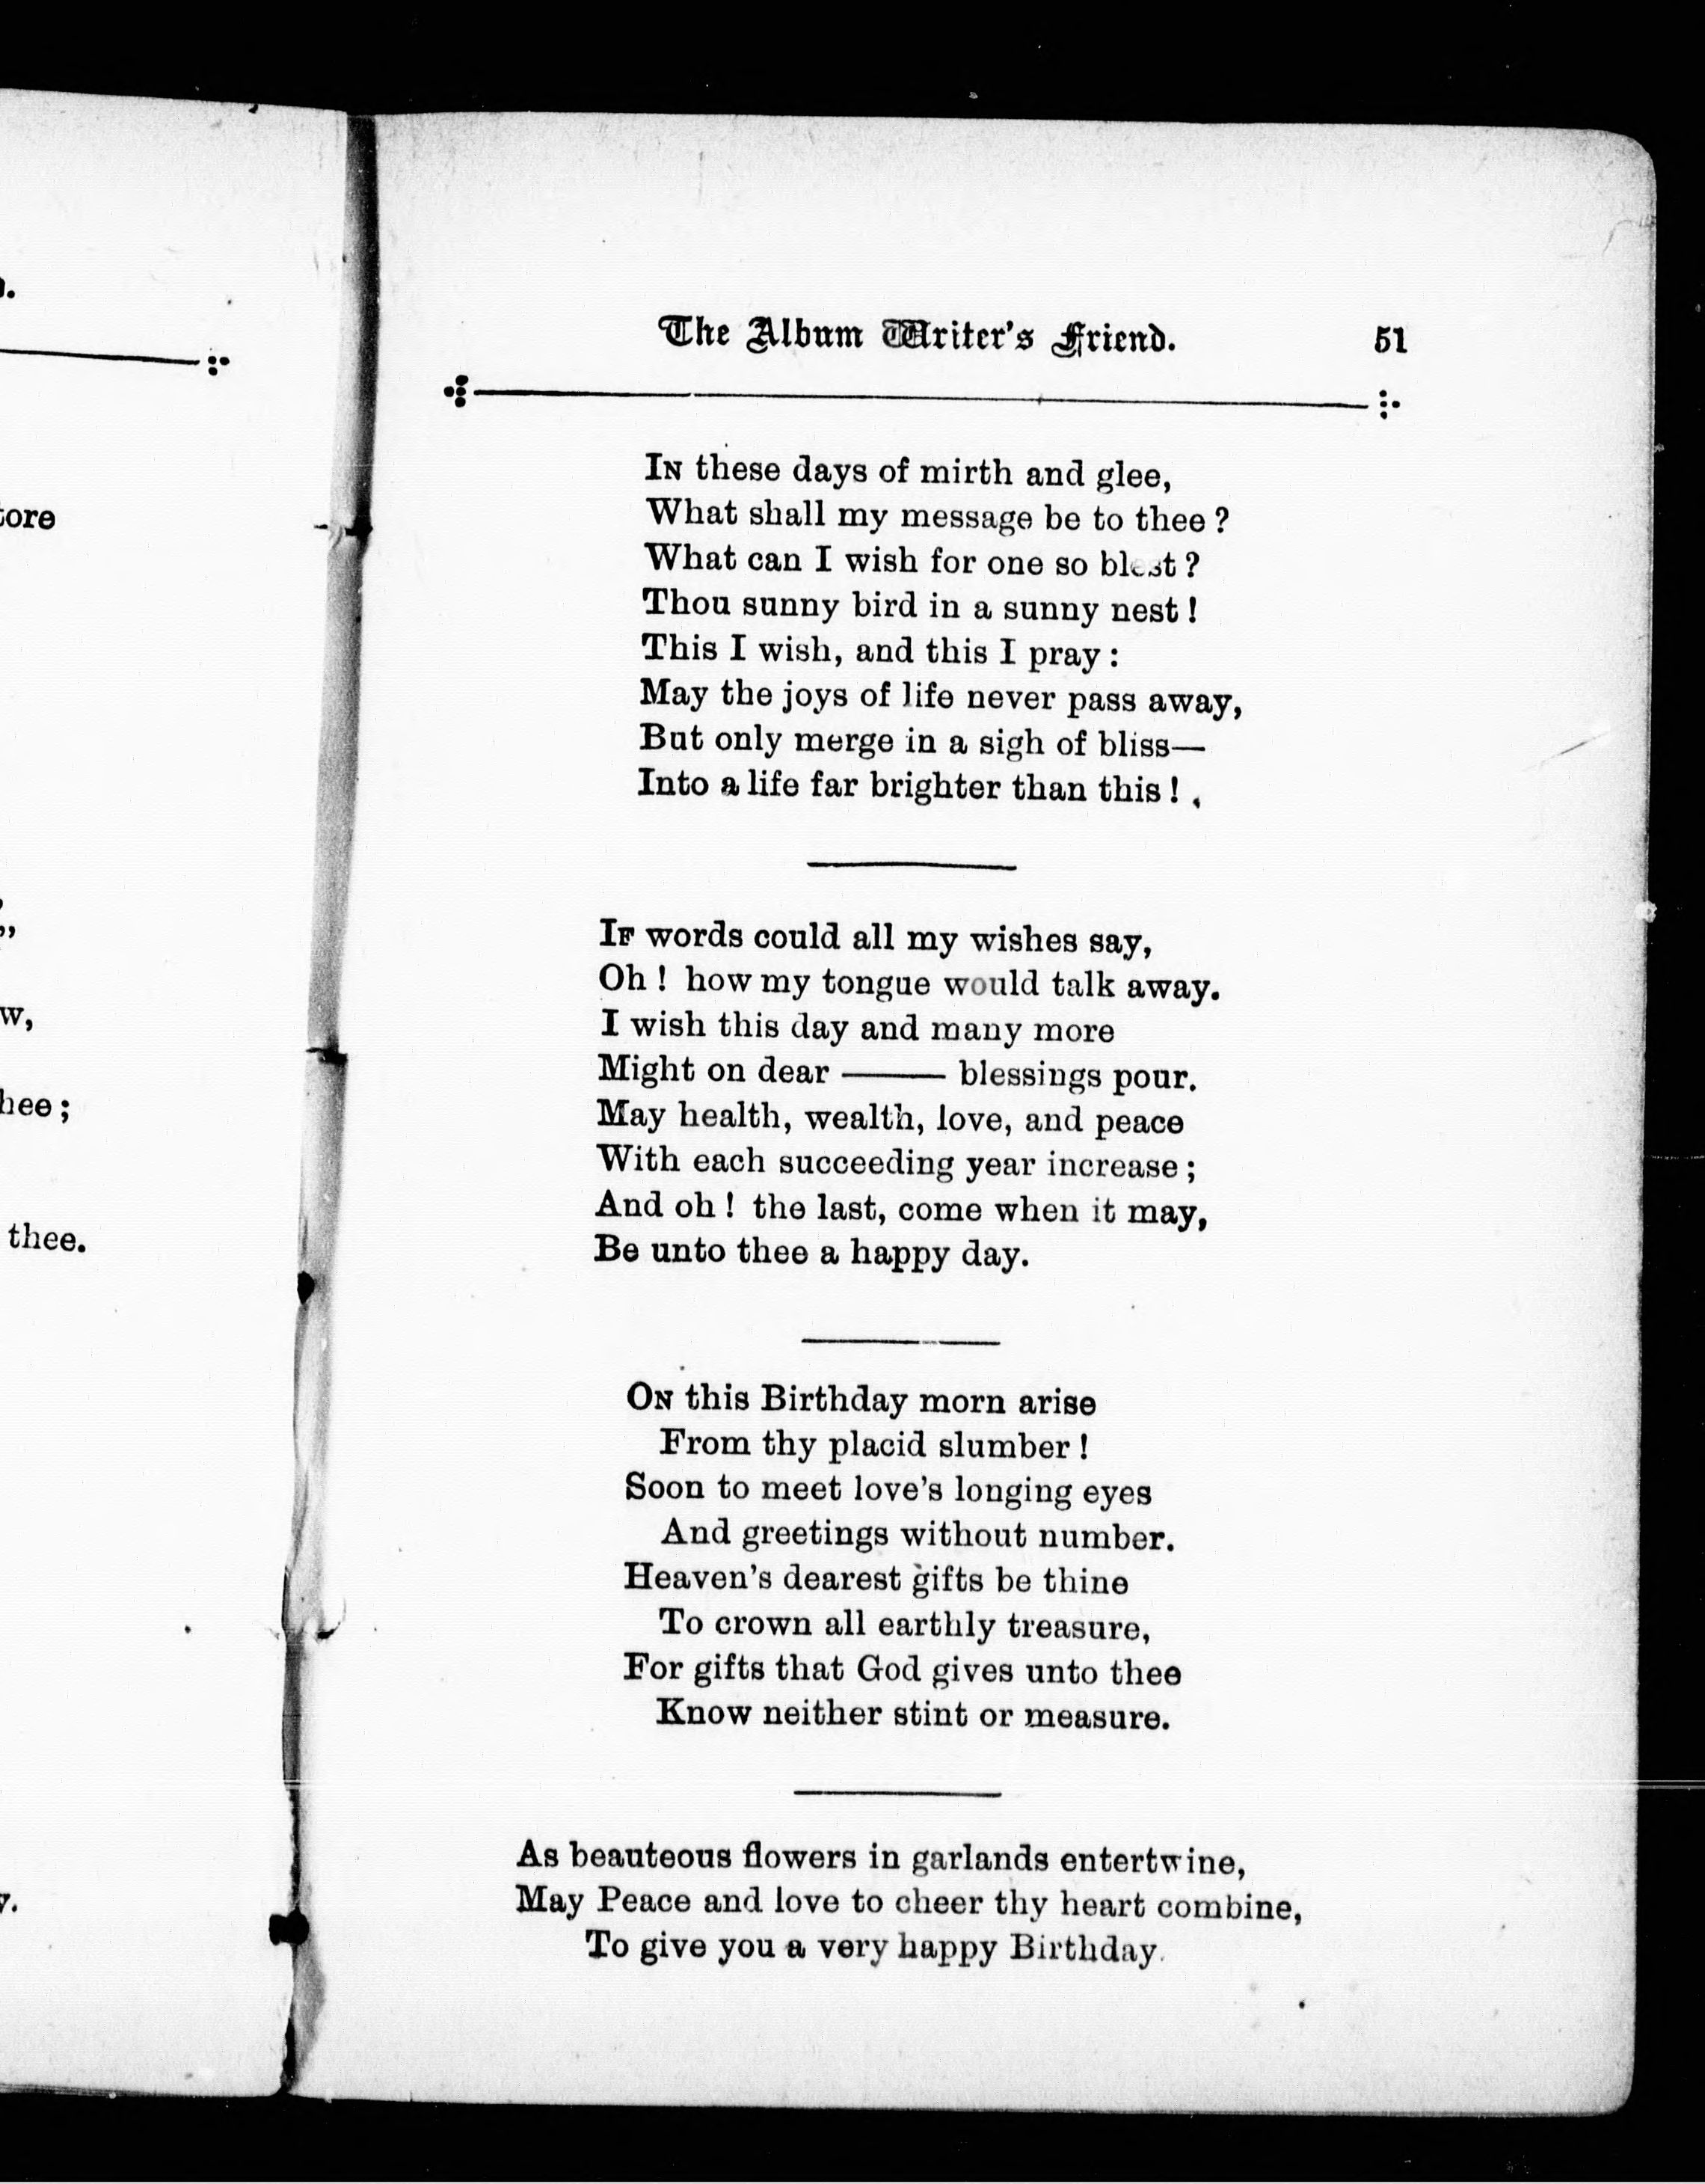 The Album Writer's Friend. 51
IN these days of mirth and glee,
What shall my message be to thee?
What can I wish for one so blest?
Thou sunny bird in a sunny nest!
This I wish, and this I pray:
May the joys of life never pass away,
But only merge in a sigh of bliss—
Into a life far brighter than this!
IF words could all my wishes say,
Oh! how my tongue would talk away.
I wish this day and many more
Might on dear ——— blessings pour.
May health, wealth, love, and peace
With each succeeding year increase;
And oh! the last, come when it may,
Be unto thee a happy day.
ON this Birthday morn arise
From thy placid slumber!
Soon to meet love's longing eyes
And greetings without number.
Heaven's dearest gifts be thine
To crown all earthly treasure,
For gifts that God gives unto thee
Know neither stint or measure.
As beauteous flowers in garlands entertwine,
May Peace and love to cheer thy heart combine,
To give you a very happy Birthday.
thee.